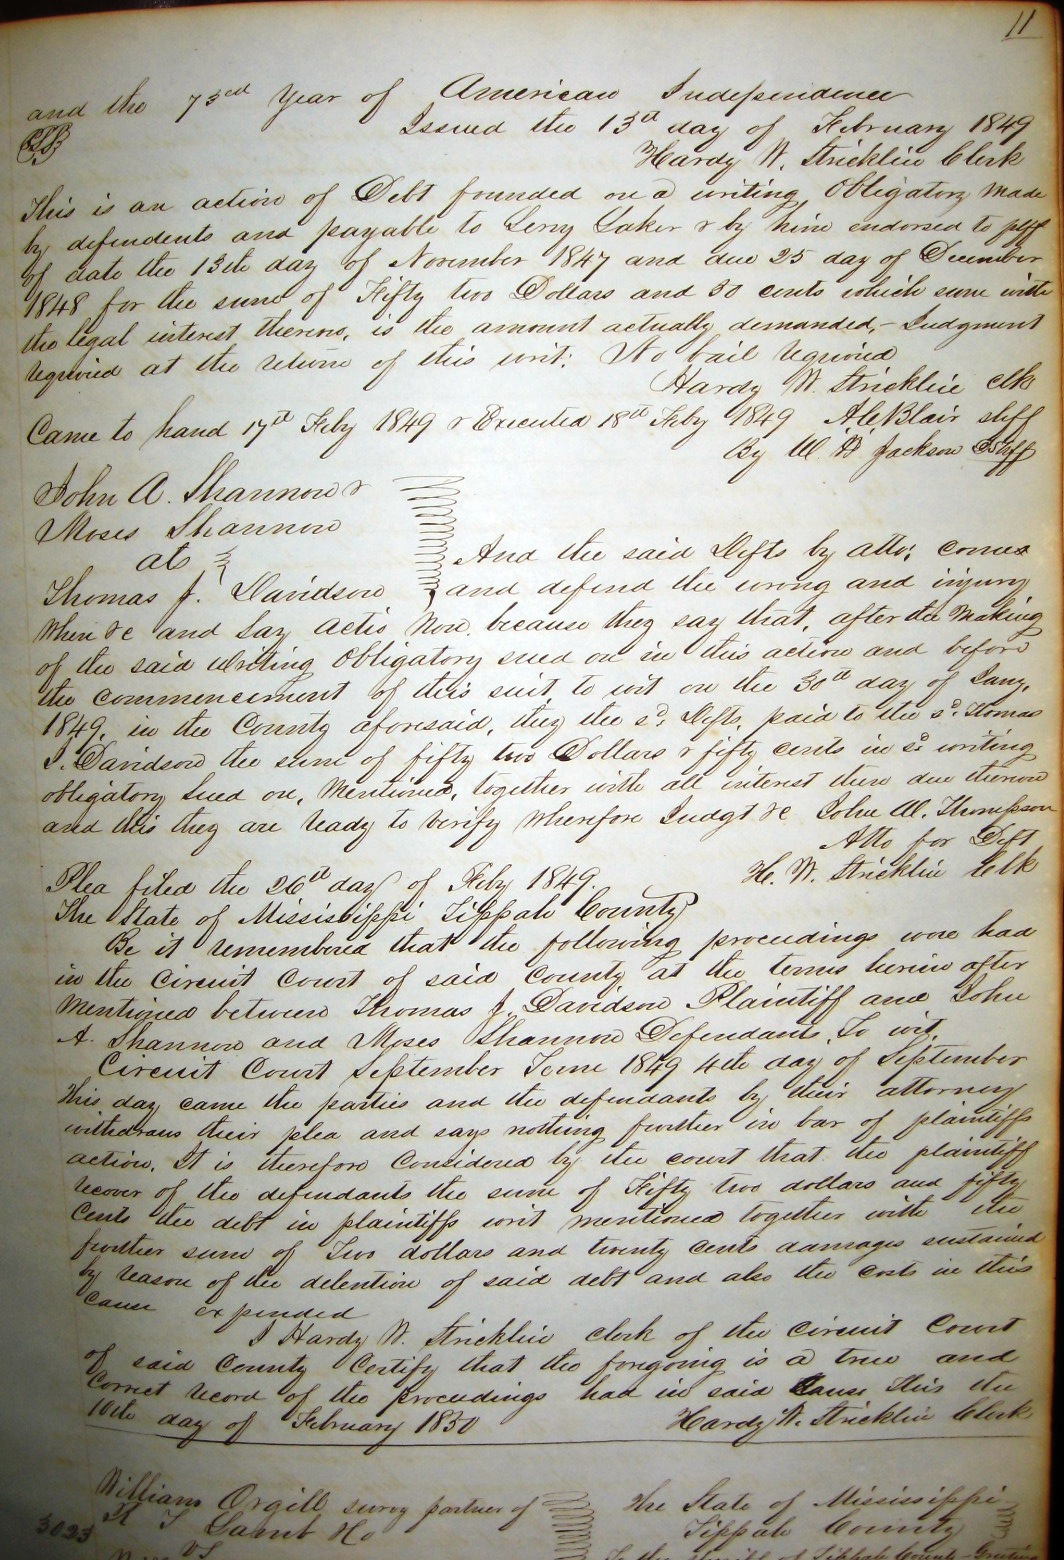 11
and the 73rd Year of American Independence
Issued the 13th day of February 1849
Hardy W. Stricklin Clerk
This is an action of Debt founded on a writing Obligatory made
by defendents and payable to Leroy Gaker & by him endorsed to plff
of date the 13th day of November 1847 and due 25 day of December
1848 for the sum of Fifty two Dollars and 50 cents which sum with
the legal interest thereon, is the amount actually demanded,- Judgment
required at the return of this writ: No bail required
Hardy W. Stricklin clk
Came to hand 17th Feby 1849 & Executed 18th Feby 1849 A C Blair shff
By W. Jackson D Shff
John A. Shannon &
Moses Shannon
ats
Thomas J. Davidson
And the said Defts by atto; comes
and defend the wrong and injury
when &c and Say actio Non. because they say that, after the making
of the said Writing Obligatory sued on in this action and before
the commencement of this suit to wit on the 30th day of Jany.
1849. in the County aforesaid, they the sd. Defts. paid to the sd. Thomas
J. Davidson the sum of fifty two Dollars & fifty cents in sd writing
obligatory Sued on, Mentioned, together with all interest then due thereon
and this they are ready to verify wherefore Judgt &c John W. Thompson
Atto for Deft
Plea filed the 26th day of Feby 1849. H. W. Stricklin Clk
The State of Mississippi Tippah County
Be it remembered that the following proceedings were had
in the Circuit Court of said County at the terms herein after
mentioned between Thomas J. Davidson Plaintiff and John
A. Shannon and Moses Shannon Defendants, To wit,
Circuit Court September Term 1849 4th day of September
This day came the parties and the defendants by their attorney
withdraws their plea and says nothing further in bar of plaintiffs
action. It is therefore Considered by the court that the plaintiff
recover of the defendants the sum of Fifty two dollars and fifty
cents the debt in plaintiffs writ mentioned together with the
further sum of Two dollars and twenty cents damages sustained
by reason of the detention of said debt and also the costs in this
cause expended
I Hardy W. Stricklin clerk of the circuit Court
of said County Certify that the foregoing is a true and
Correct record of the proceedings had in said Cause this the
10th day of February 1850 Hardy W. Stricklin Clerk
William Orgill surv partner of
3023
vs
The State of Mississippi
Tippah County